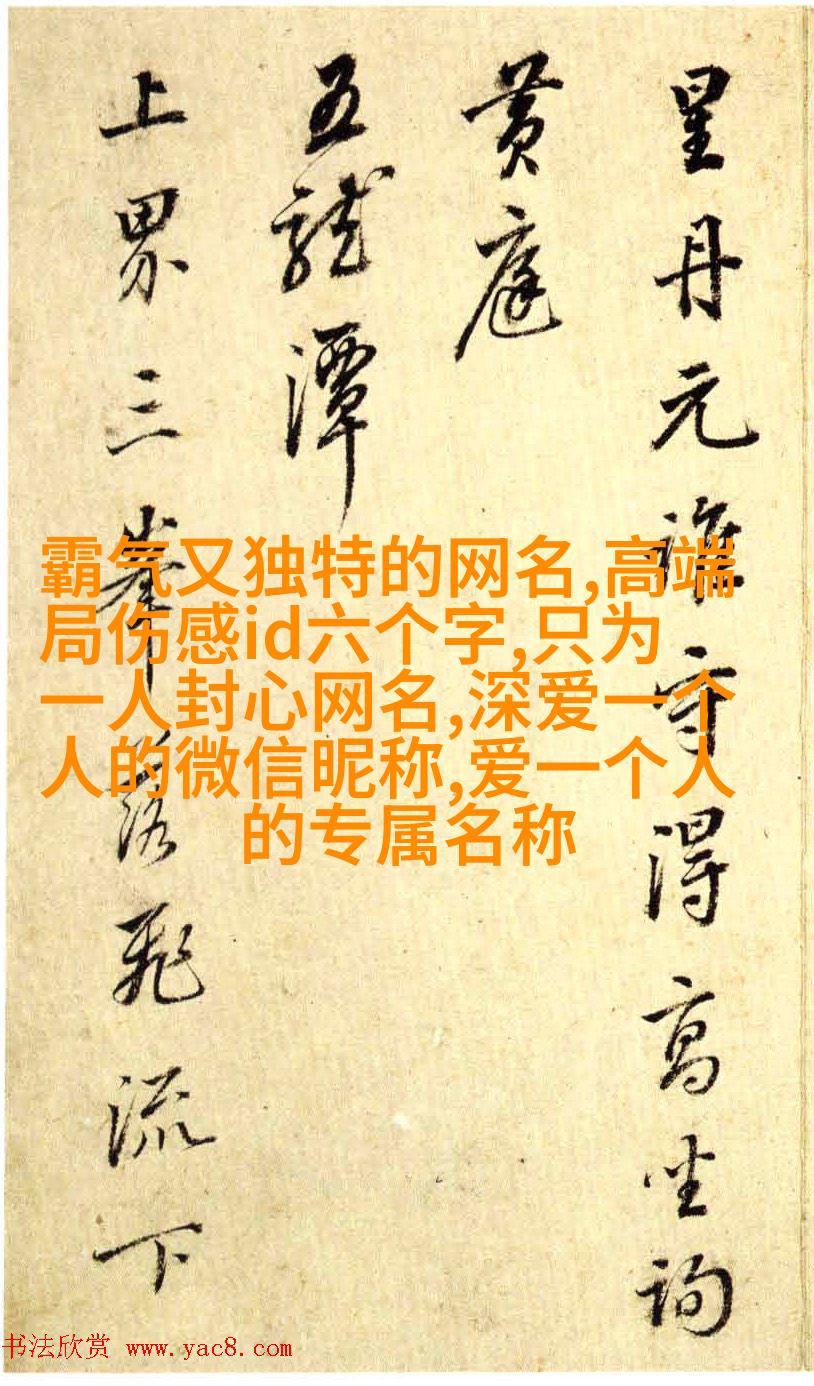 星丹元誰守得高坐詢
黄庭
五龍潭
上界三峯落飛流下
霸气又独特的网名,高端
局伤感id六个字,只为
一人封心网名,深爱一个
人的微信昵称,爱一个人
的专属名称
书法欣赏 www.yac8.com